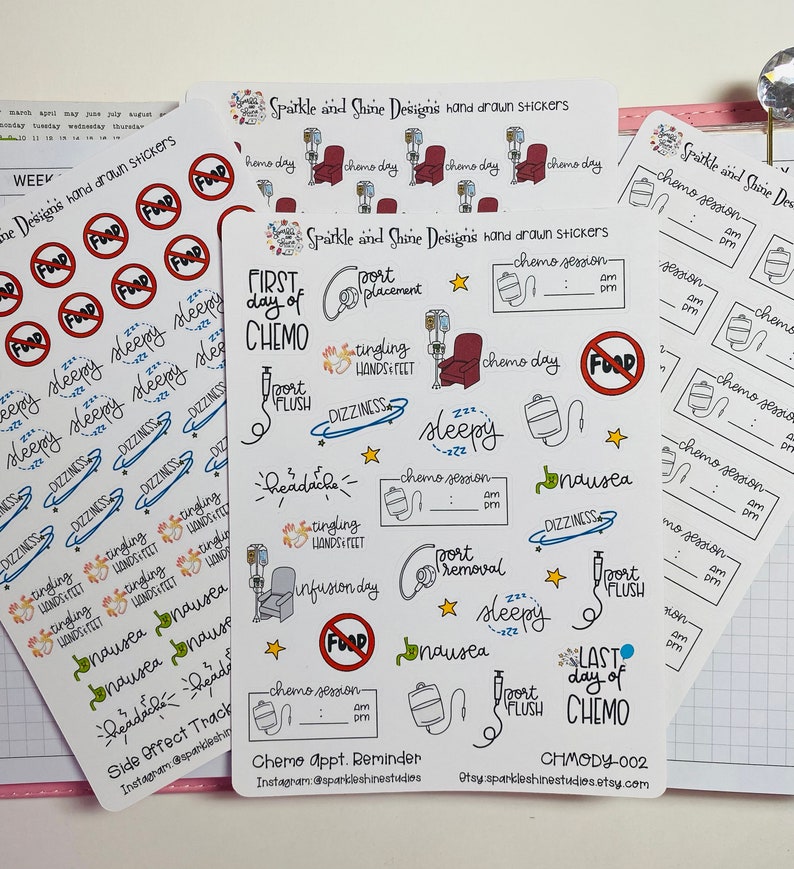 march april may june july august
monday tuesday wednesday thursday
9 10 11 12 13 14 15 16 17
WEEK
Sparkle and Shine Designs hand drawn stickers
chemo day chemo day chemo day chemo day
Shine Designs hand drawn stickers
FOOD FOOD FOOD FOOD FOOD
FOOD FOOD FOOD FOOD
sleepy sleepy sleepy sleepy
sleepy sleepy sleepy
DIZZINESS DIZZINESS DIZZINESS
DIZZINESS DIZZINESS DIZZINESS
tingling HANDS & FEET
tingling HANDS & FEET
tingling HANDS & FEET
tingling HANDS & FEET
tingling HANDS & FEET
nausea nausea
nausea nausea
headache headache
Side Effect Track
Instagram:@sparkleshinestudios
Sparkle and Shine Designs
chemo session
am
pm
chemo session
am
pm
chemo session
chemo session
am
pm
chemo session
am
pm
Sparkle and Shine Designs hand drawn stickers
FIRST
day of
CHEMO
port
placement
chemo session
: am
pm
tingling
HANDS & FEET
chemo day
FOOD
port
FLUSH
DIZZINESS
zzz
sleepy
zzz
headache
chemo session
: am
pm
nausea
tingling
HANDS & FEET
DIZZINESS
infusion day
port
removal
port
FLUSH
zzz
sleepy
zzz
FOOD
nausea
LAST
day of
CHEMO
chemo session
: am
pm
port
FLUSH
Chemo Appt. Reminder
CHMODY-002
Instagram:@sparkleshinestudios
Etsy:sparkleshinestudios.etsy.com